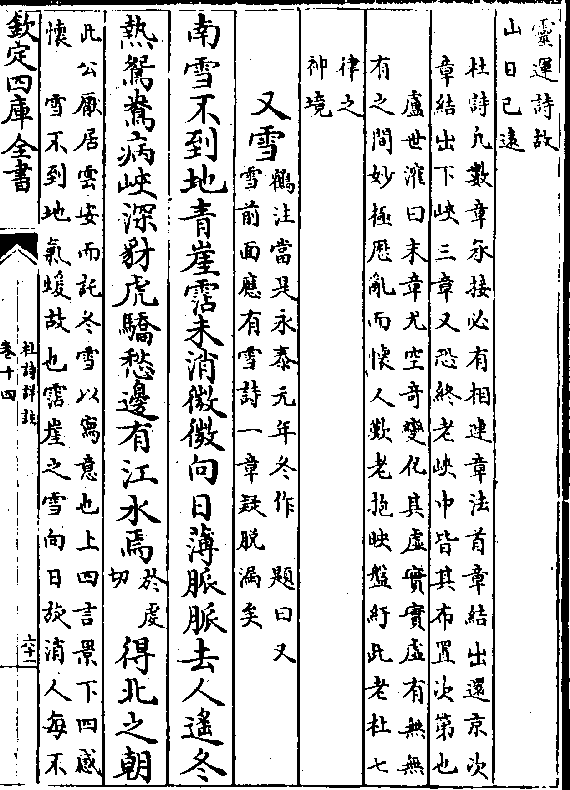 靈運詩故
山日已遠
杜詩凡數章承接必有相連章法首章結出還京次
章結出下峽三章又恐終老峽中皆其布置次第也
盧世㴶曰末章尤空奇變化其虛實實虛有無無
有之間妙極厯亂而懷人歎老抱映盤紆此老杜七
律之
神境
又雪
鶴注當是永泰元年冬作　題曰又
雪前面應有雪詩一章疑脱漏矣
南雪不到地青崖霑未消微微向日薄脈脈去人遙冬
熱鴛鴦病峽深豺虎驕愁邊有江水焉
於虔
切
得北之朝
此公厰居雲安而託冬雪以寓意也上四言景下四感
懷　雪不到地氣蝯故也霑崖之雪向日旋消人每不
欽定四庫全書
杜詩詳註
卷十四
六十二